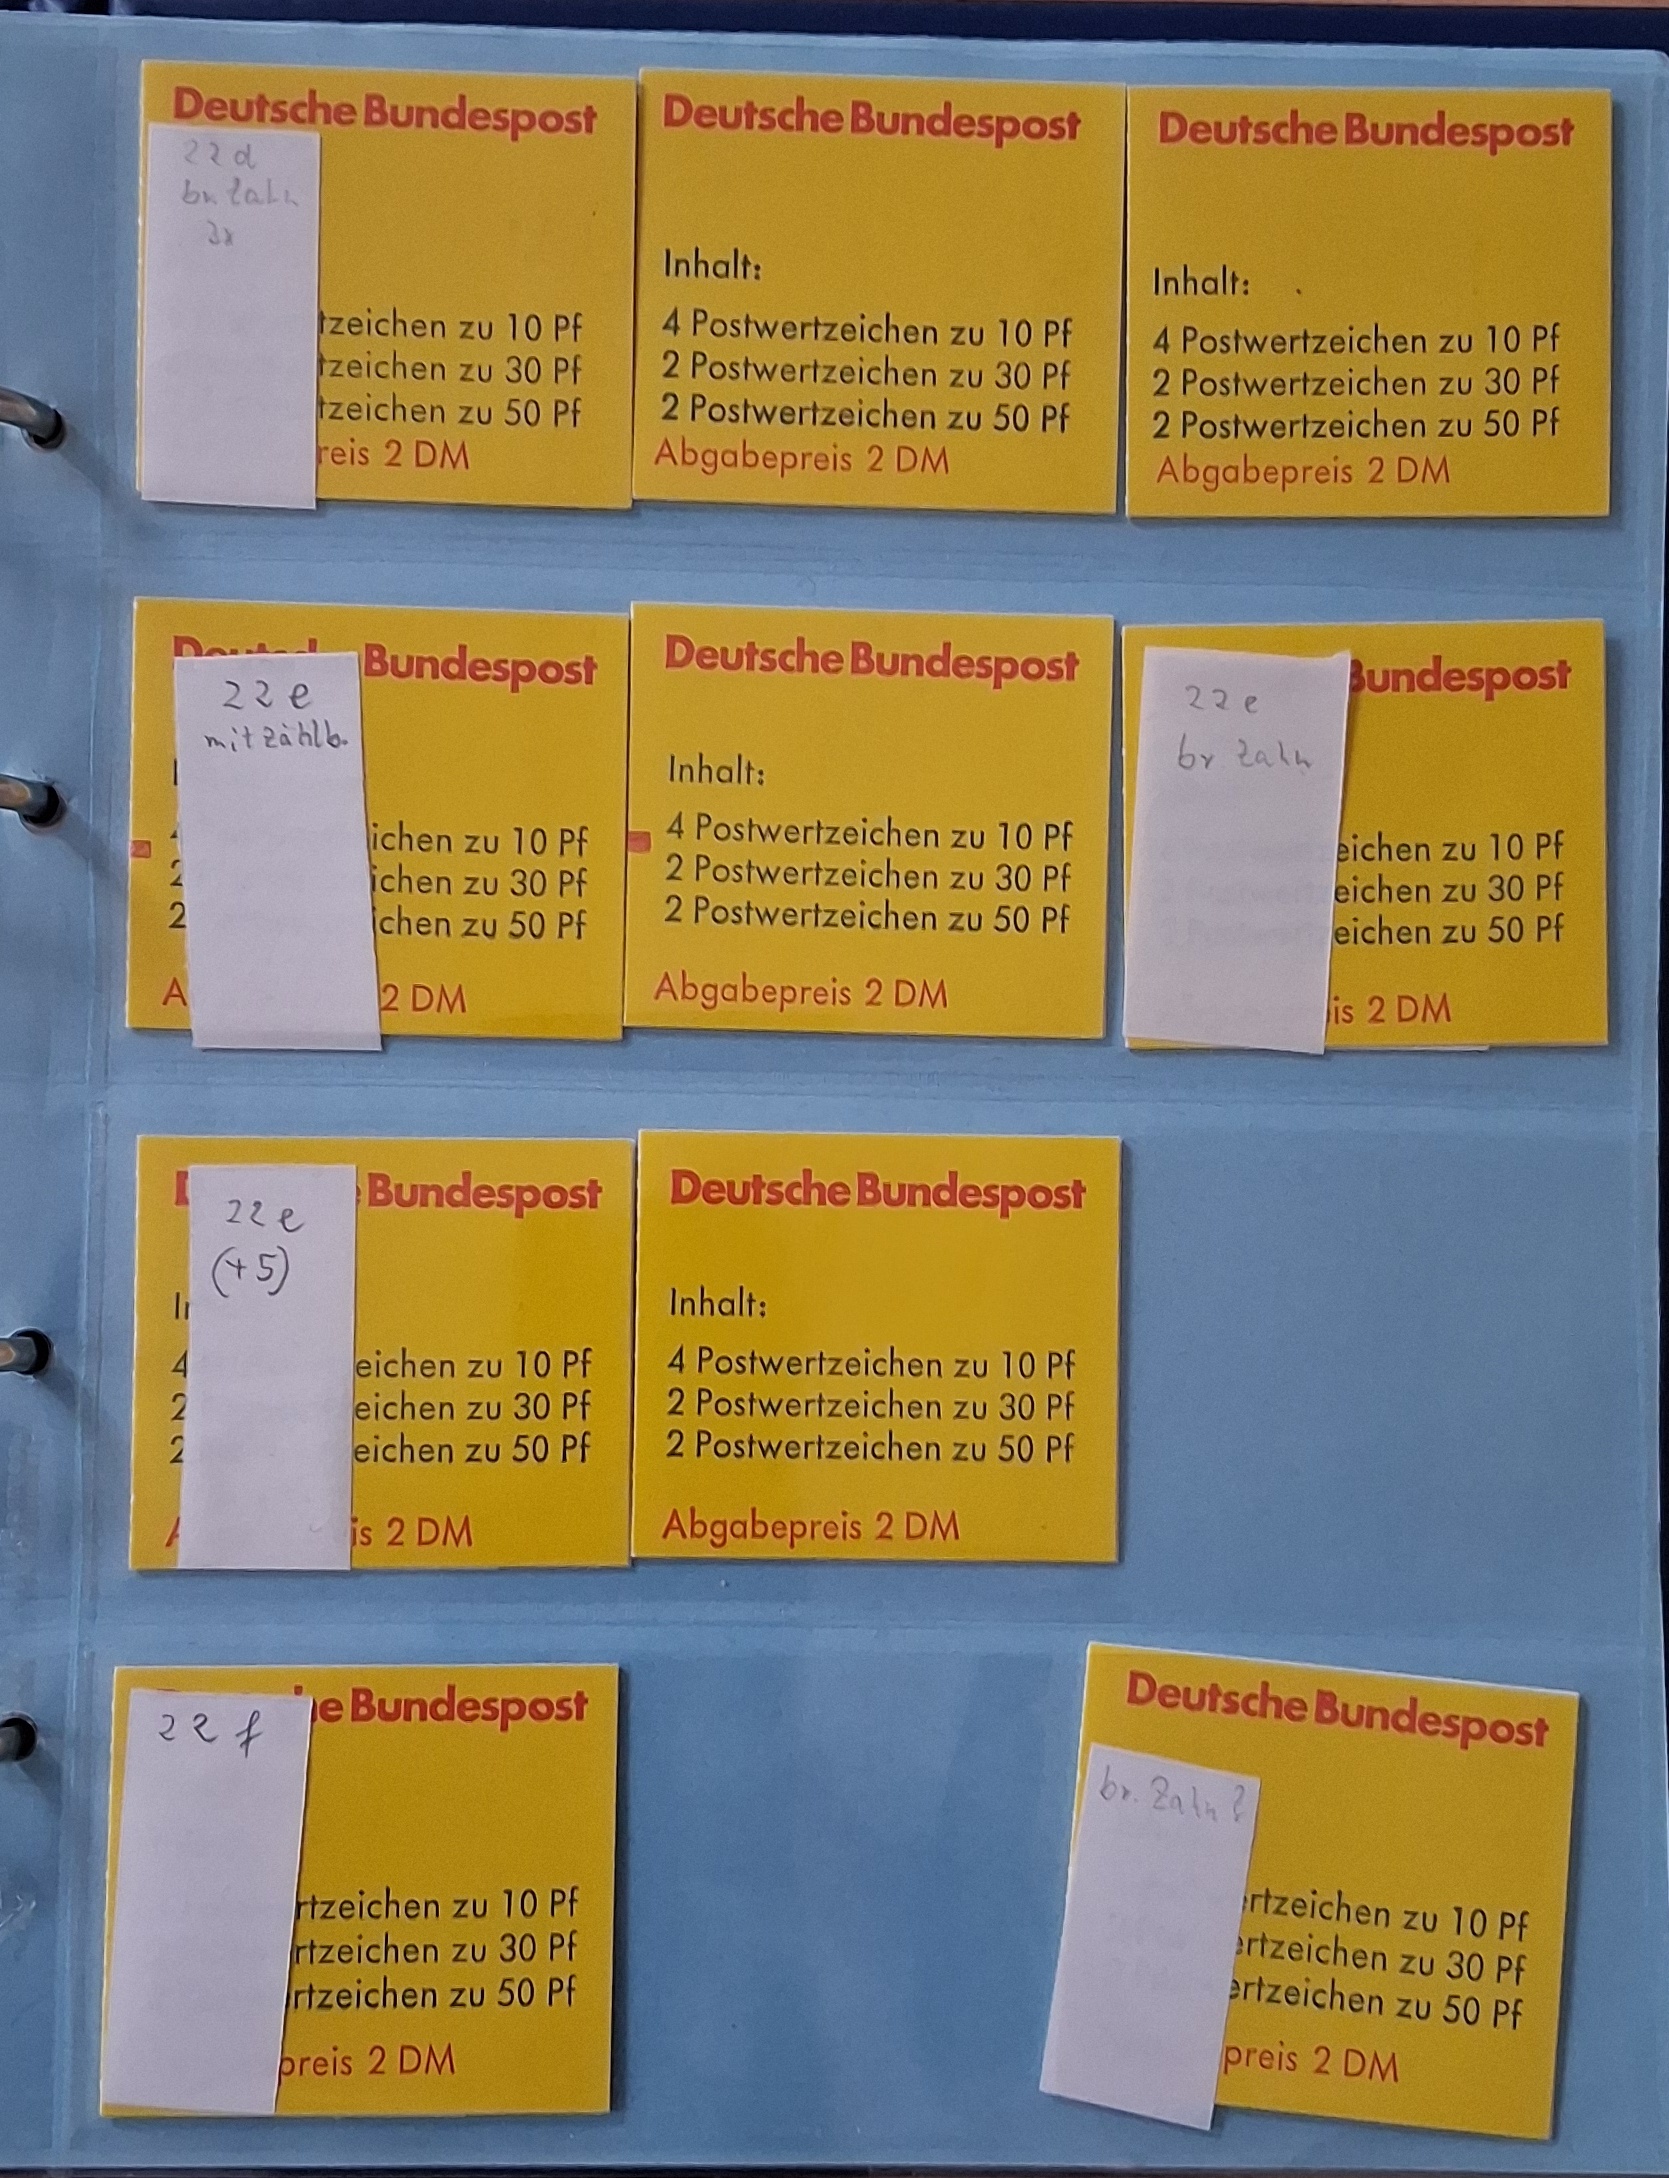 Deutsche Bundespost
22 d
br. Zahn
3x
tzeichen zu 10 Pf
tzeichen zu 30 Pf
tzeichen zu 50 Pf
reis 2 DM
Deutsche Bundespost
Inhalt:
4 Postwertzeichen zu 10 Pf
2 Postwertzeichen zu 30 Pf
2 Postwertzeichen zu 50 Pf
Abgabepreis 2 DM
Deutsche Bundespost
Inhalt:
4 Postwertzeichen zu 10 Pf
2 Postwertzeichen zu 30 Pf
2 Postwertzeichen zu 50 Pf
Abgabepreis 2 DM
Bundespost
22 e
mit Zählb.
ichen zu 10 Pf
2 ichen zu 30 Pf
2 ichen zu 50 Pf
A 2 DM
Deutsche Bundespost
Inhalt:
4 Postwertzeichen zu 10 Pf
2 Postwertzeichen zu 30 Pf
2 Postwertzeichen zu 50 Pf
Abgabepreis 2 DM
Bundespost
22 e
br. Zahn
eichen zu 10 Pf
eichen zu 30 Pf
eichen zu 50 Pf
is 2 DM
Bundespost
22 e
(+5)
4 eichen zu 10 Pf
2 eichen zu 30 Pf
2 eichen zu 50 Pf
A is 2 DM
Deutsche Bundespost
Inhalt:
4 Postwertzeichen zu 10 Pf
2 Postwertzeichen zu 30 Pf
2 Postwertzeichen zu 50 Pf
Abgabepreis 2 DM
he Bundespost
22 f
rtzeichen zu 10 Pf
rtzeichen zu 30 Pf
rtzeichen zu 50 Pf
preis 2 DM
Deutsche Bundespost
br. Zahn?
rtzeichen zu 10 Pf
ertzeichen zu 30 Pf
ertzeichen zu 50 Pf
preis 2 DM